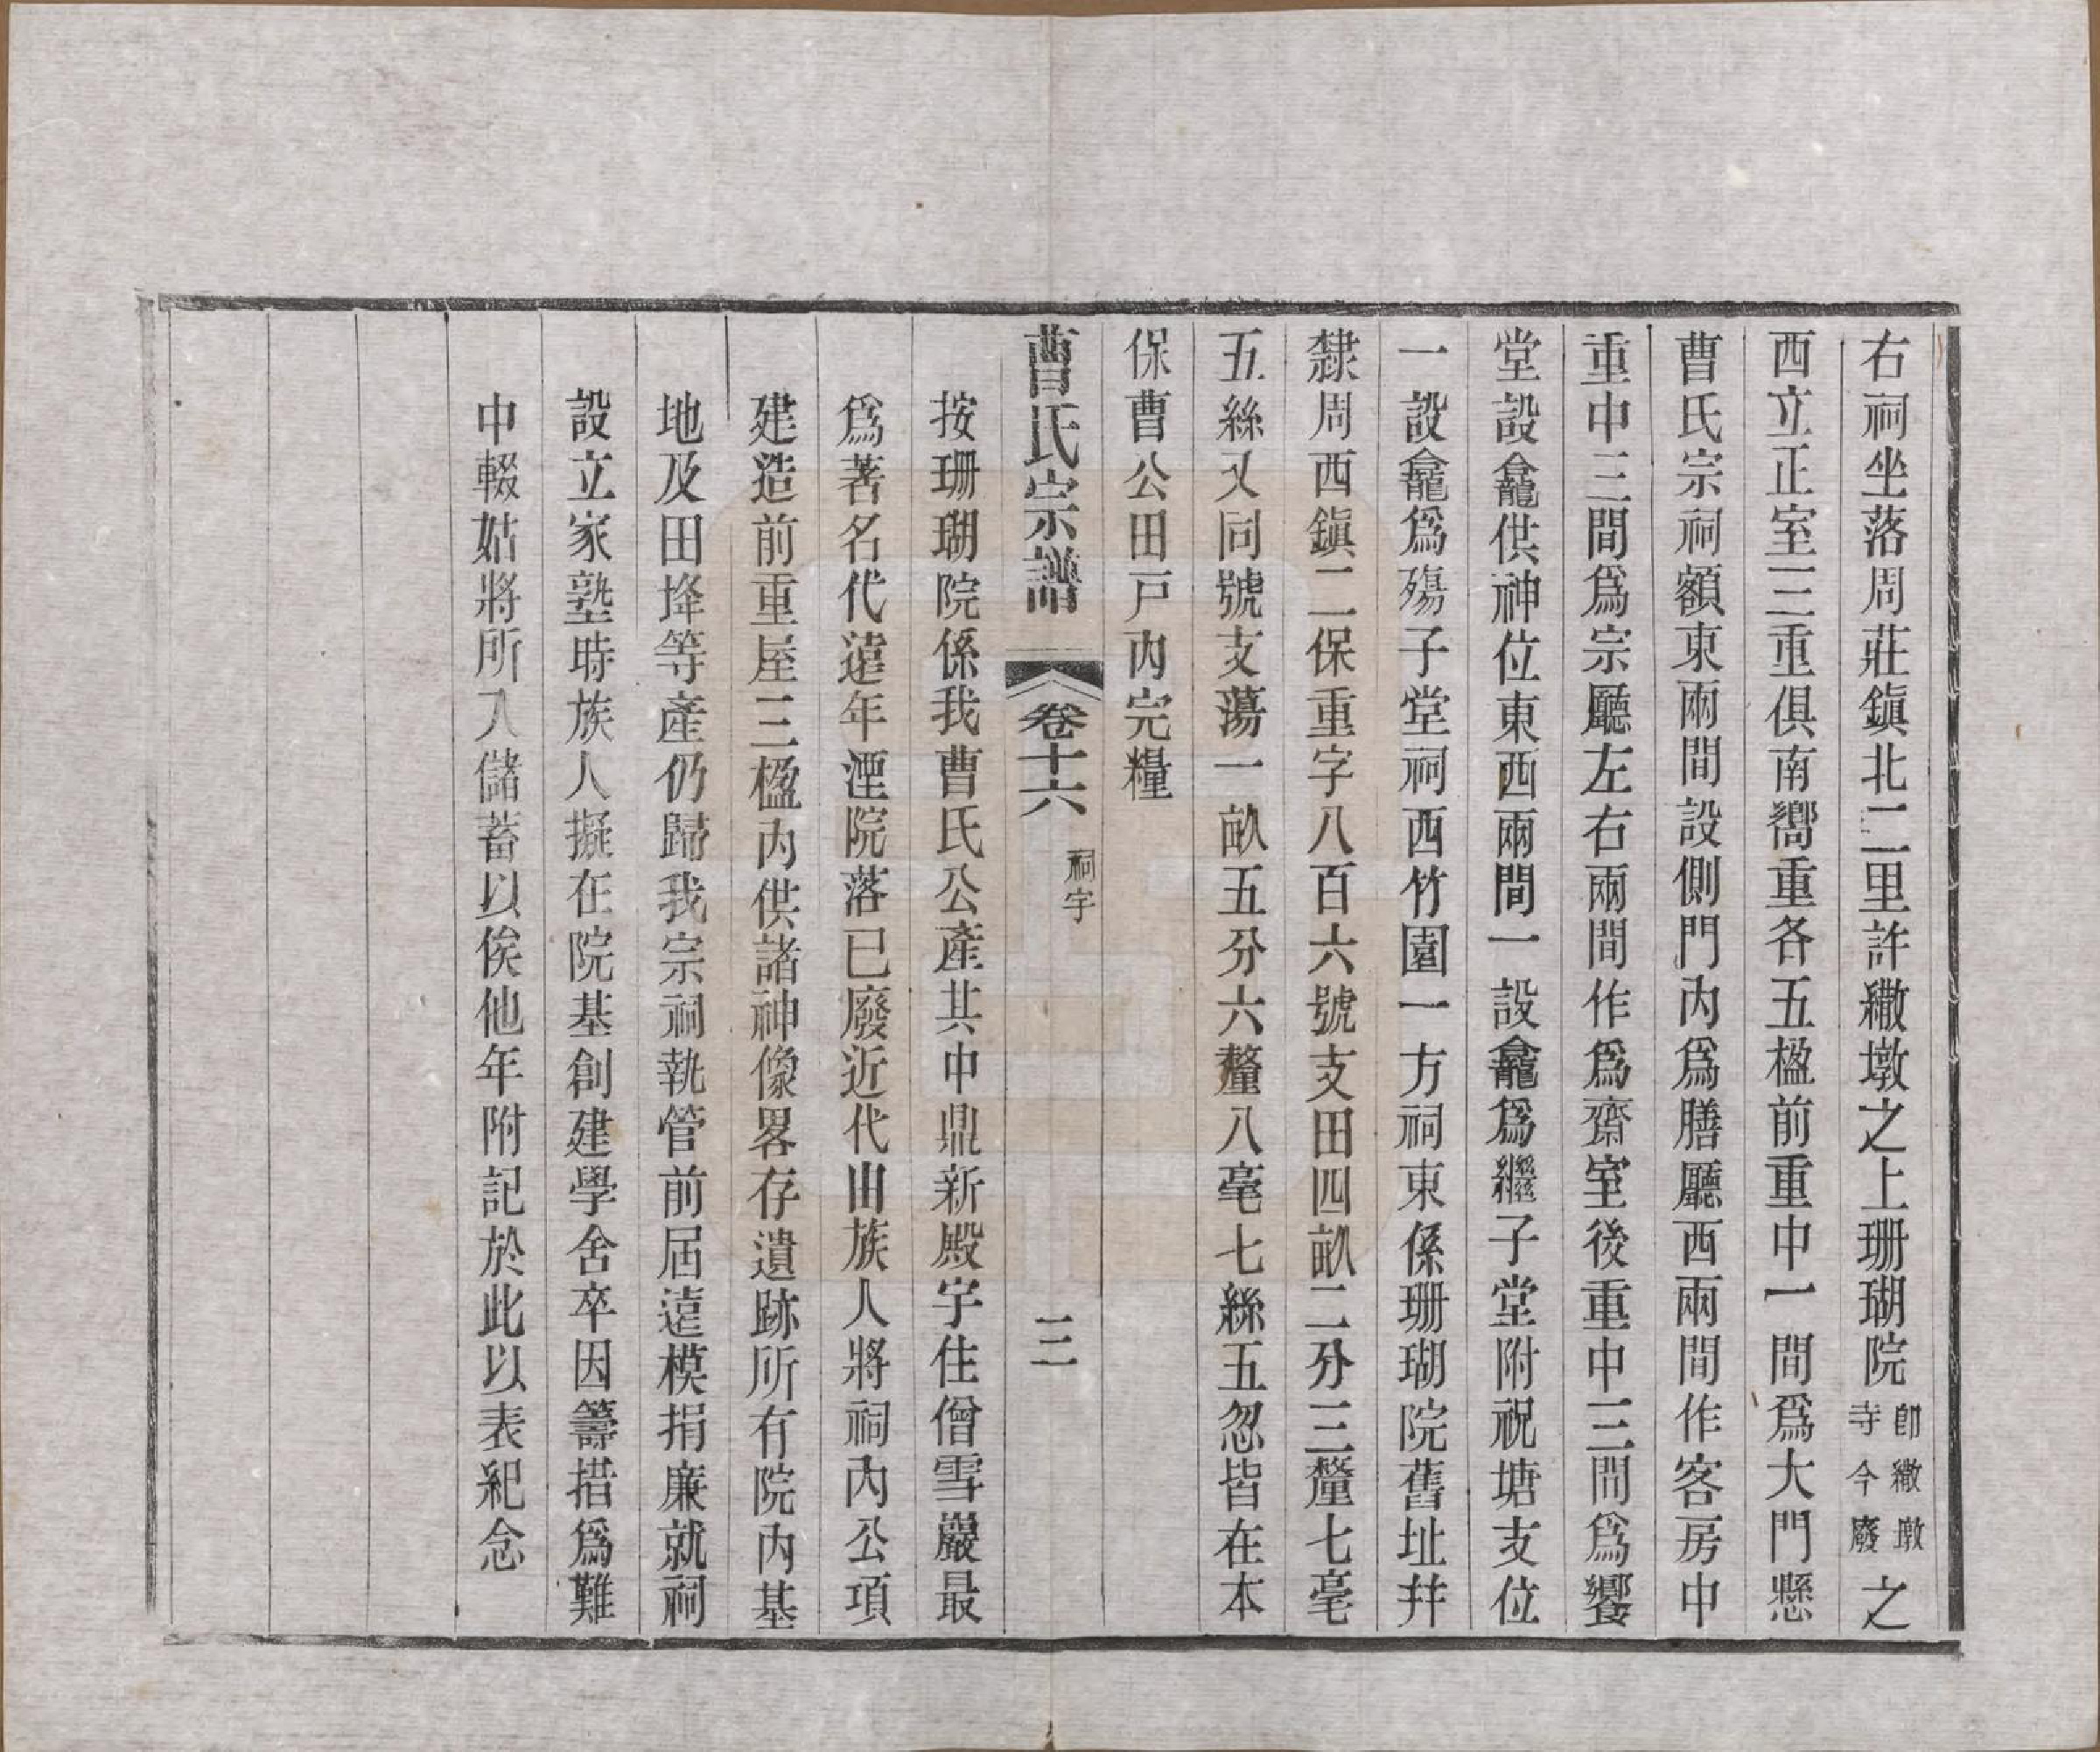 右祠坐落周莊鎭北二里許繖墩之上珊瑚院卽繖墩寺今廢之
西立正室三重俱南嚮重各五楹前重中一間爲大門懸
曹氏宗祠額東兩間設側門內爲膳廳西兩間作客房中
重中三間爲宗廳左右兩間作爲齋室後重中三間爲饗
堂設龕供神位東西兩間一設龕爲繼子堂附祝塘支位
一設龕爲殤子堂祠西竹園一方祠東係珊瑚院舊址幷
隸周西鎭二保重字八百六號支田四畝二分三釐七毫
五絲又同號支蕩一畝五分六釐八毫七絲五忽皆在本
保曹公田戶內完糧
曹氏宗譜 卷十六 祠宇 三
按珊瑚院係我曹氏公產其中鼎新殿宇住僧雪巖最
爲著名代遠年湮院落已廢近代由族人將祠內公項
建造前重屋三楹內供諸神像畧存遺跡所有院內基
地及田埄等產仍歸我宗祠執管前屆遠模捐廉就祠
設立家塾時族人擬在院基創建學舍卒因籌措爲難
中輟姑將所入儲蓄以俟他年附記於此以表紀念